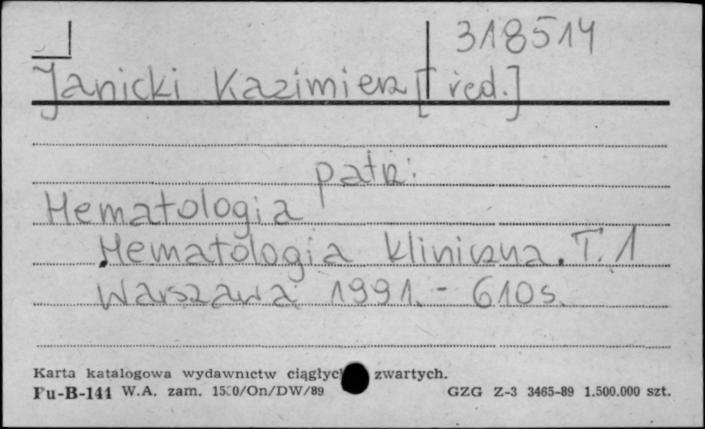 318514
Janicki Kazimierz [red.]
patrz:
Hematologia
Hematologia kliniczna. T. 1
Warszawa 1991. - 610 s.
Karta katalogowa wydawnictw ciągłych zwartych.
Fu-B-141 W.A. zam. /On/DW/89 GZG Z-3 3465-89 1.500.000 szt.